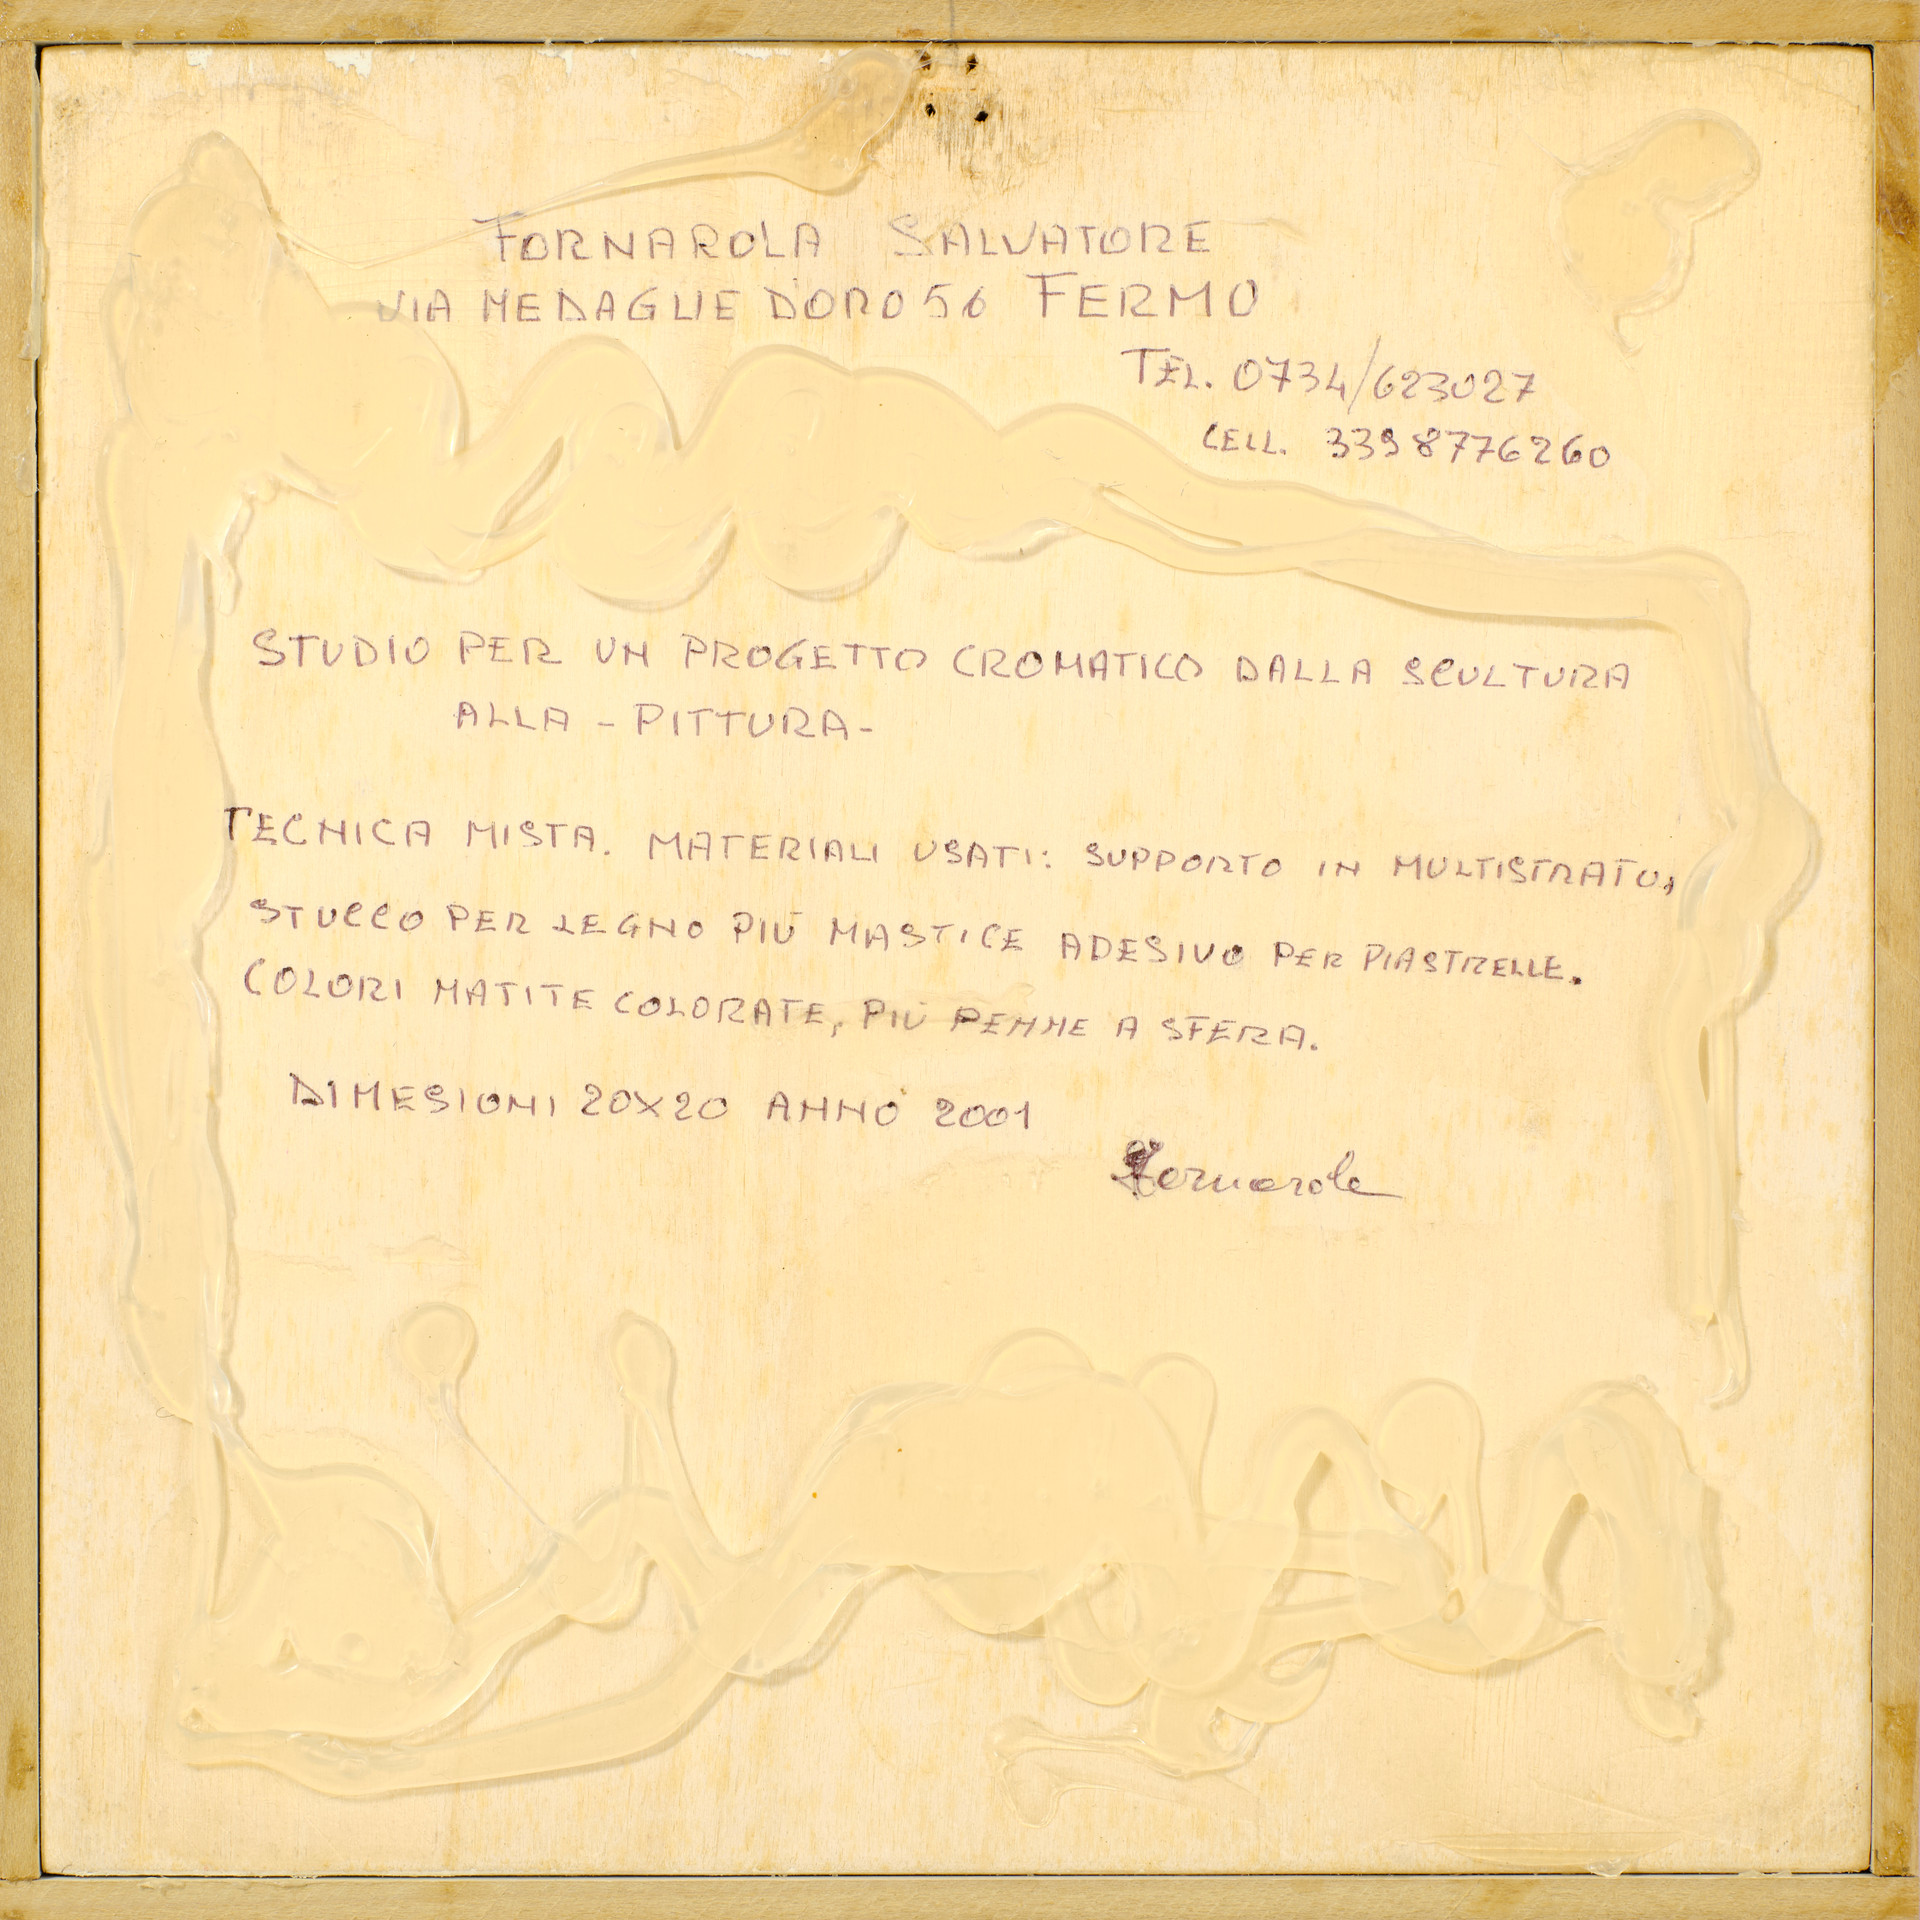 FORNAROLA SALVATORE
VIA MEDAGLIE DORO 56 FERMO
TEL. 0734/623027
CELL. 3398776260
STUDIO PER UN PROGETTO CROMATICO DALLA SCULTURA
ALLA - PITTURA -
TECNICA MISTA. MATERIALI USATI: SUPPORTO IN MULTISTRATO,
STUCCO PER LEGNO PIÙ MASTICE ADESIVO PER PIASTRELLE.
COLORI MATITE COLORATE, PIÙ PENNE A SFERA.
DIMESIONI 20X20 ANNO 2001
Fornarola